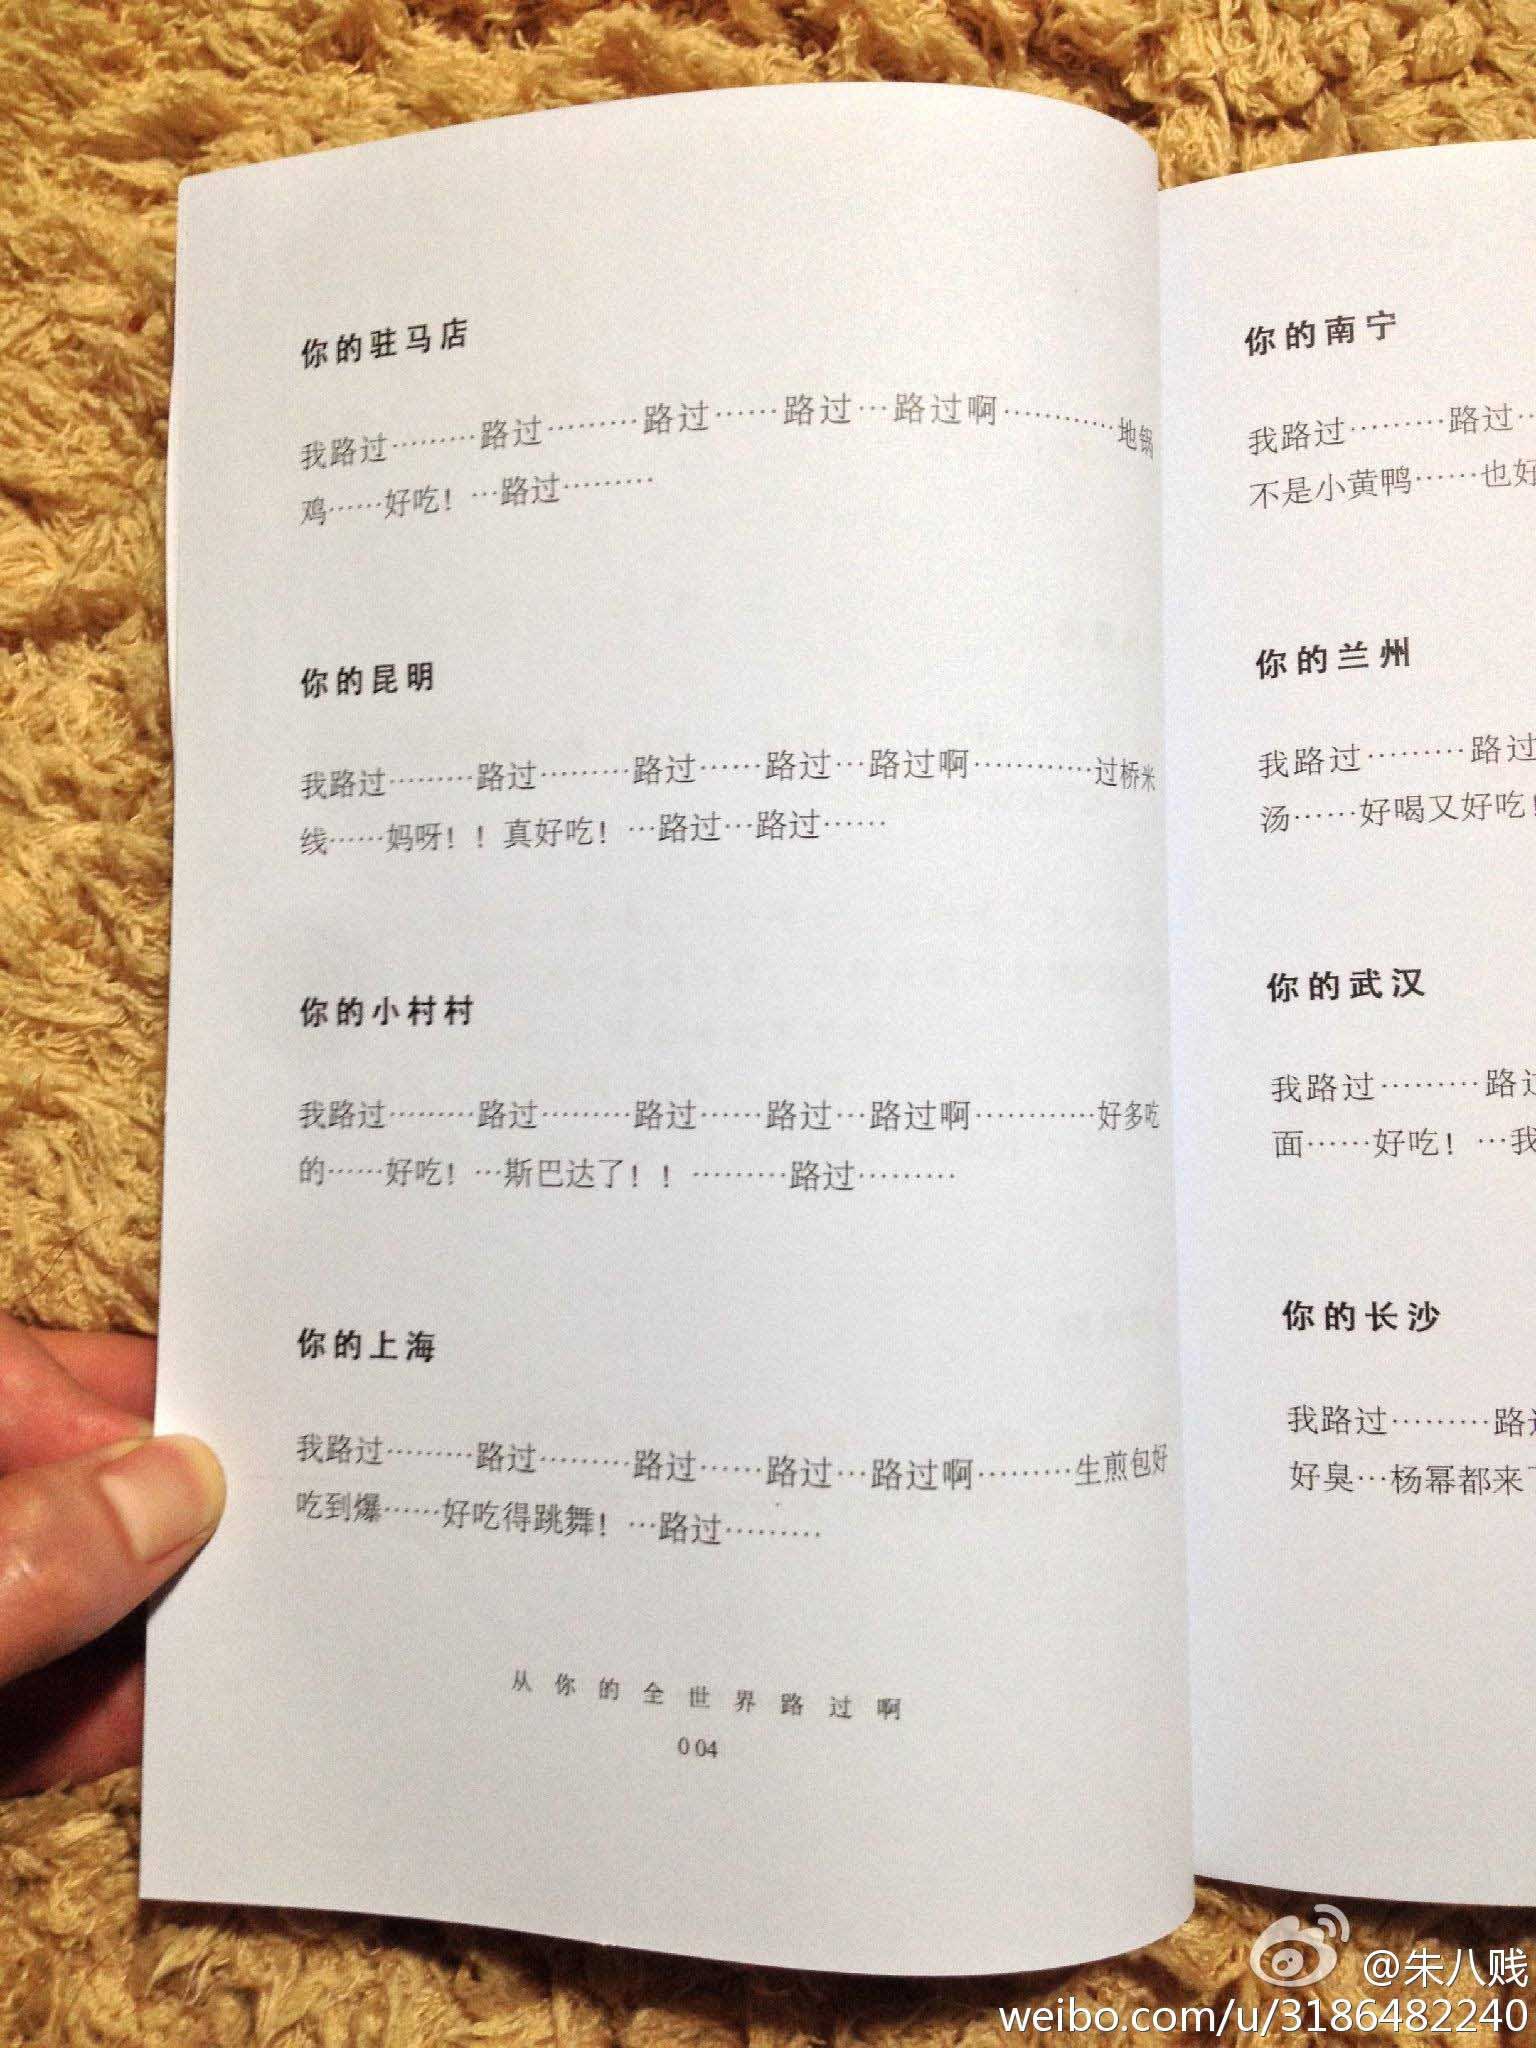 你的驻马店
我路过………路过………路过……路过…路过啊…………地锅
鸡……好吃！…路过………
你的昆明
我路过………路过………路过……路过…路过啊…………过桥米
线……妈呀！！真好吃！…路过…路过……
你的小村村
我路过………路过………路过……路过…路过啊…………好多吃
的……好吃！…斯巴达了！！………路过………
你的上海
我路过………路过………路过……路过…路过啊………生煎包好
吃到爆……好吃得跳舞！…路过………
从你的全世界路过啊
004
你的南宁
我路过………路过…
不是小黄鸭……也好
你的兰州
我路过………路过
汤……好喝又好吃！
你的武汉
我路过………路过
面……好吃！…我
你的长沙
我路过………路过
好臭…杨幂都来了
@朱八贱
weibo.com/u/3186482240